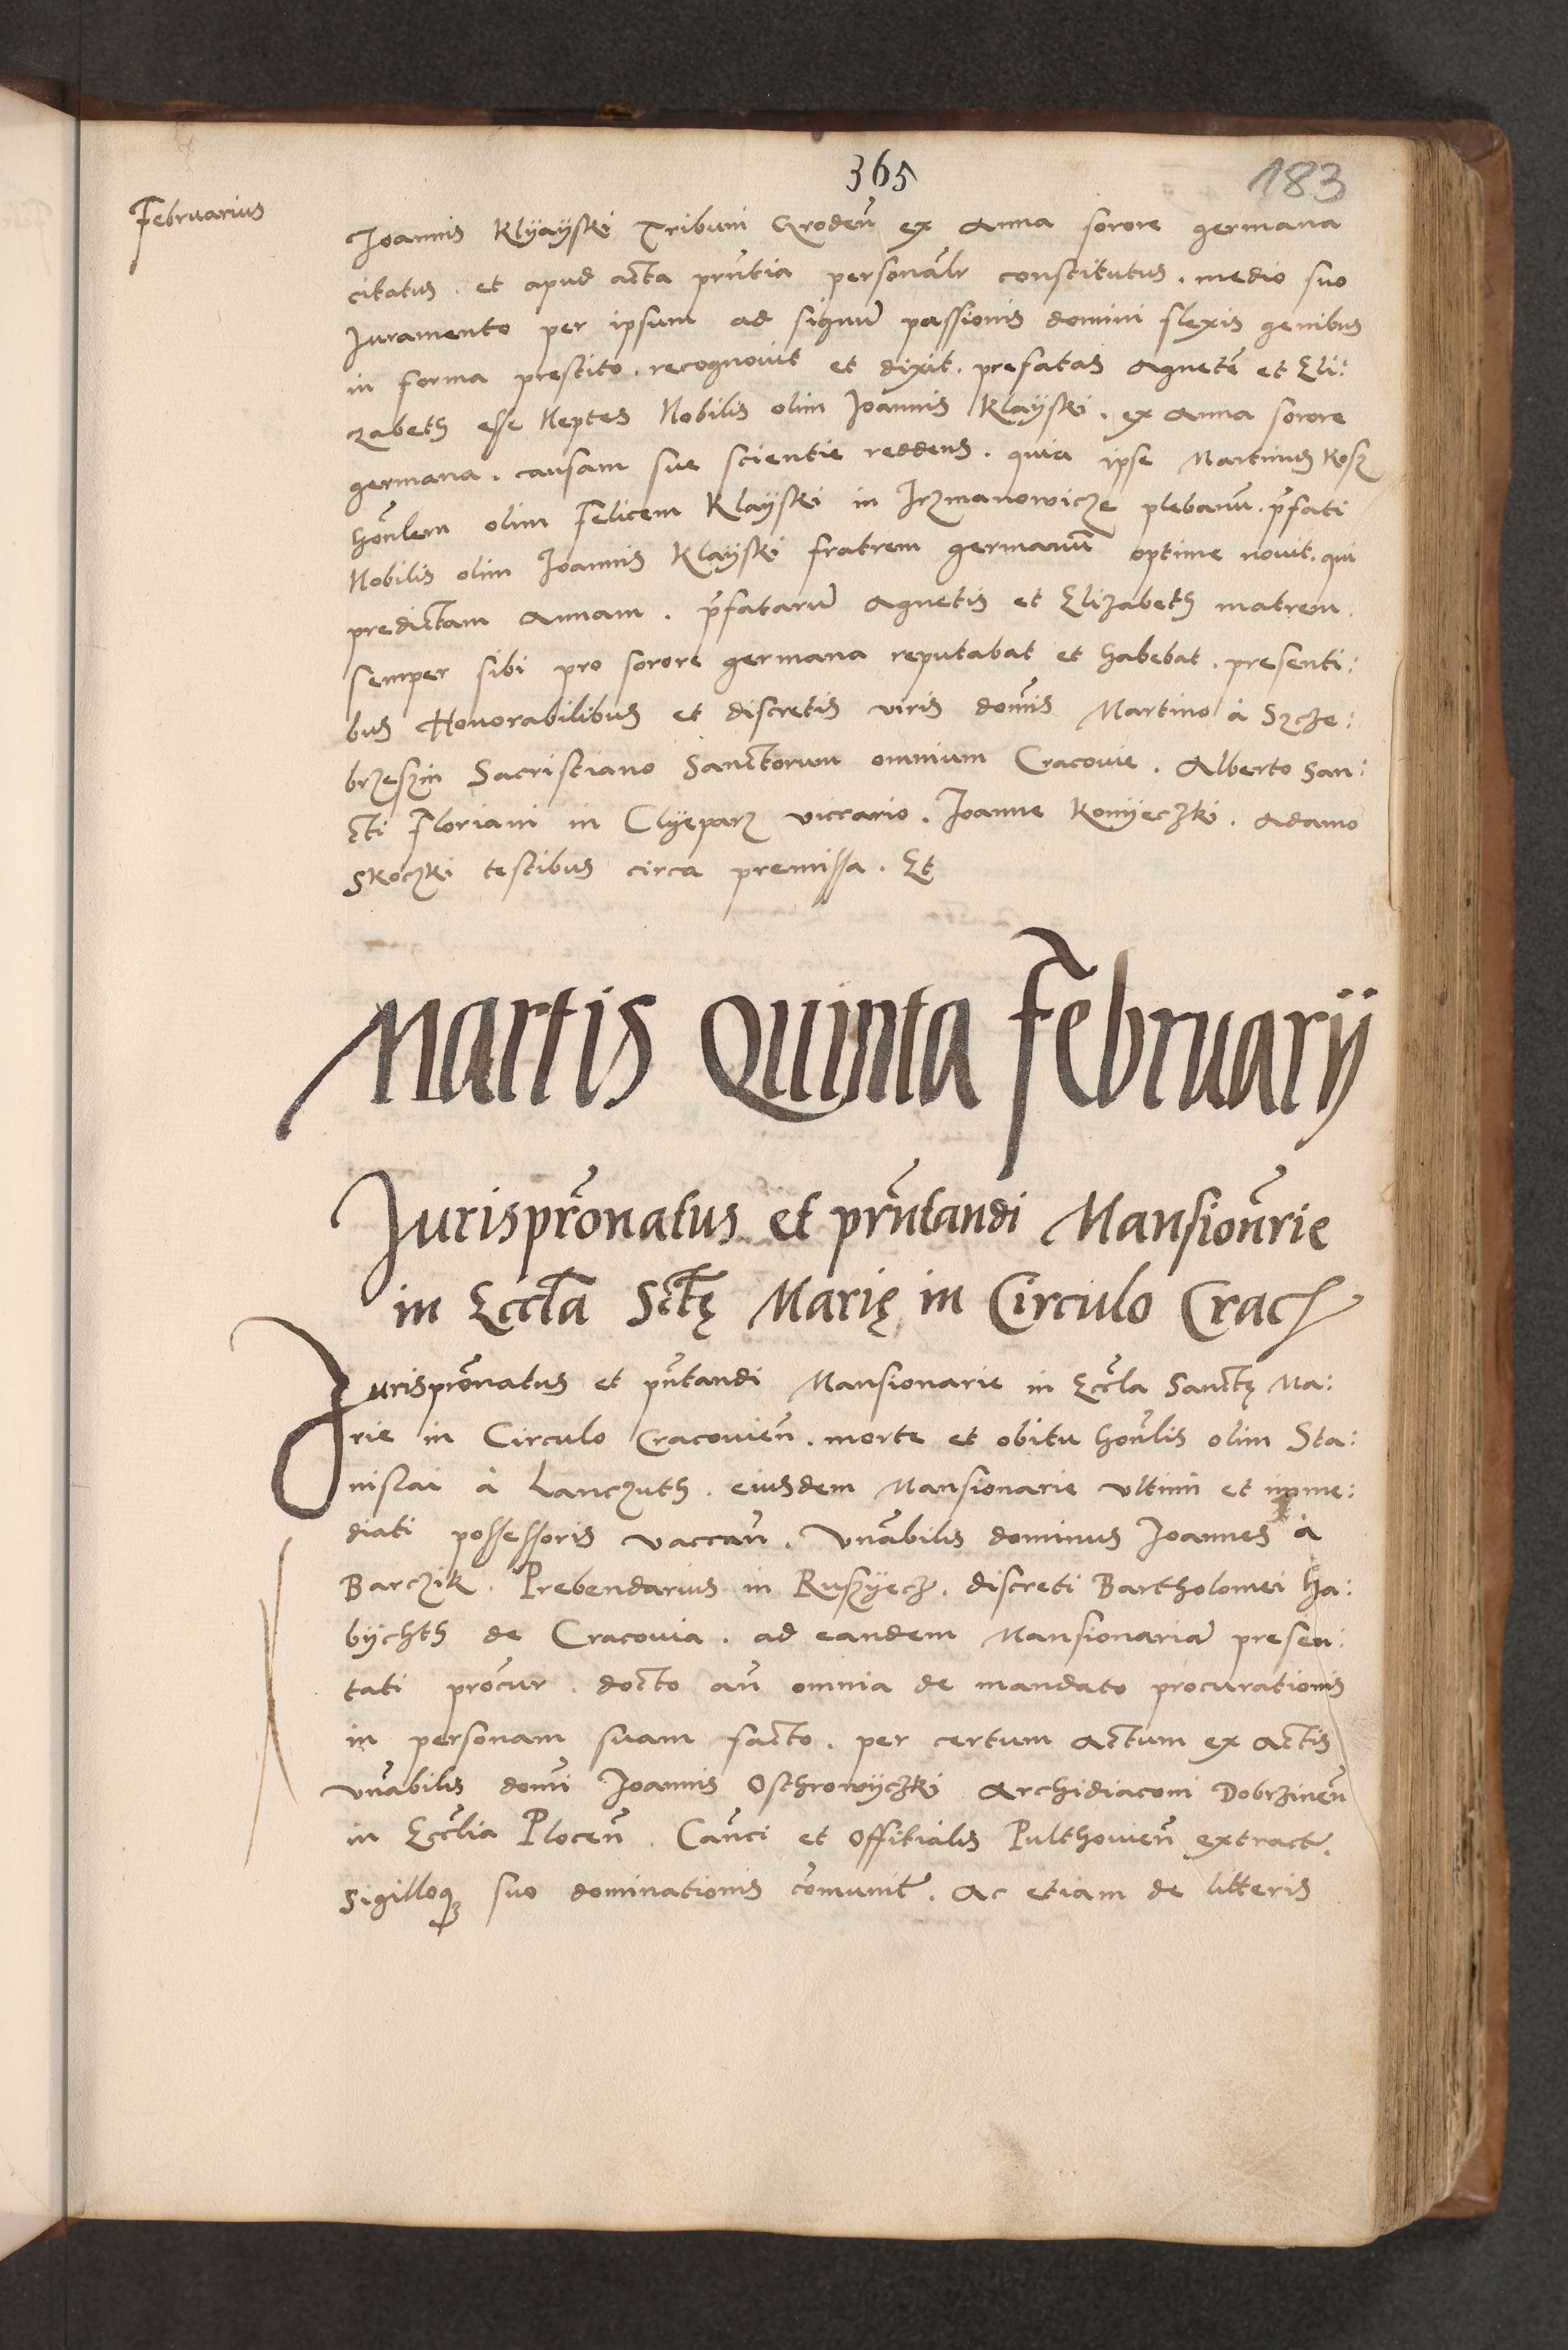 365
183
Februarius
Joannis Klyayski Tribuni Groden̄ ex Anna sorore germana
citatus . et apud acta pr̄ntia personal̄r constitutus . medio suo
Juramento per ipsum ad signū passionis domini flexis genibus
in forma prestito . recognouit et dixit . prefatas Agnetē et Eli:
zabeth esse Neptes Nobilis olim Joannis Klayski . ex Anna sorore
germana . causam sue scientie reddens . quia ipse Martinus Kosz
hon̄lem olim Felicem Klayski in Irzmanowicze plebanū . p̄fati
Nobilis olim Joannis Klayski fratrem germanū optime nouit . qui
predictam Annam . p̄fatarū Agnetis et Elizabeth matrem .
semper sibi pro sorore germana reputabat et habebat . presenti:
bus Honorabilibus et discretis viris dom̄is Martino à Szcze:
brzeszin Sacristiano Sanctorum omnium Cracouie . Alberto San:
cti Floriani in Clyeparz vicrario . Joanne Konyeczki . Adamo
Skoczki testibus circa premissa . Et
Martis Quinta Februarij
Jurispr̄onatus et pr̄ntandi Mansion̄rie
in Eccl̄a Sctę Marię in Circulo Crac
Jurisprōnatus et pn̄tandi Mansionarie in Eccl̄a Sanctę Ma:
rie in Circulo Cracouien̄ . morte et obitu hon̄lis olim Sta:
nislai à Lanczuth . eiusdem Mansionarie vltimi et imme:
diati possessoris vaccan̄ . Vn̄abilis dominus Joannes à
Barczik . Prebendarius in Ruszyecz . discreti Bartholomei Ha:
bychth de Cracouia . ad eandem Mansionariā presen:
tati procūr . docto an̄ omnia de mandato procurationis
in personam suam facto . per certum Actum ex Actis
vn̄abilis domi Joannis Osthrowyczki Archidiaconi Dobrzinen̄
in Eccl̄ia Plocen̄ . Can̄ci et Offitialis Pulthouien̄ extract̄ .
Sigilloq̨ suo dominationis cōmunit̄ . Ac etiam de litteris